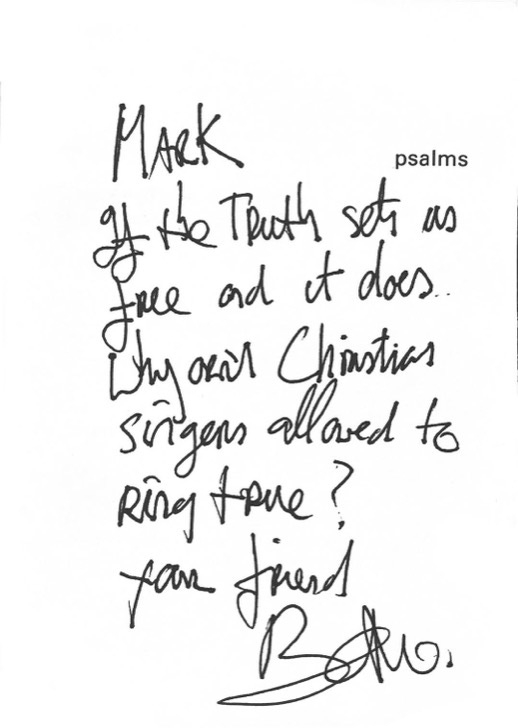 MARK
psalms
If the Truth sets us
free and it does..
Why aren't Christian
singers allowed to
Ring true?
your friend